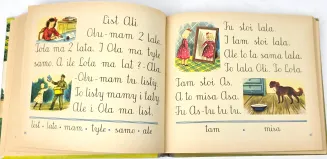 List Ali
Obu-mam 2 lale.
Lola ma 2 lata. I Ola ma tyle
samo. A ile Lola ma lat? - Ala.
Obu-mam tu listy.
Te listy mamy i taty.
Ale i Ola ma list.
list - lale - mam - tyle - samo - ale
Tu stoi lala.
I tam stoi lala.
Ale to ta sama lala.
To lala Oli. To Lola.
Tam stoi As.
A to misa Asa.
Tu As-tu tu tu...
tam misa